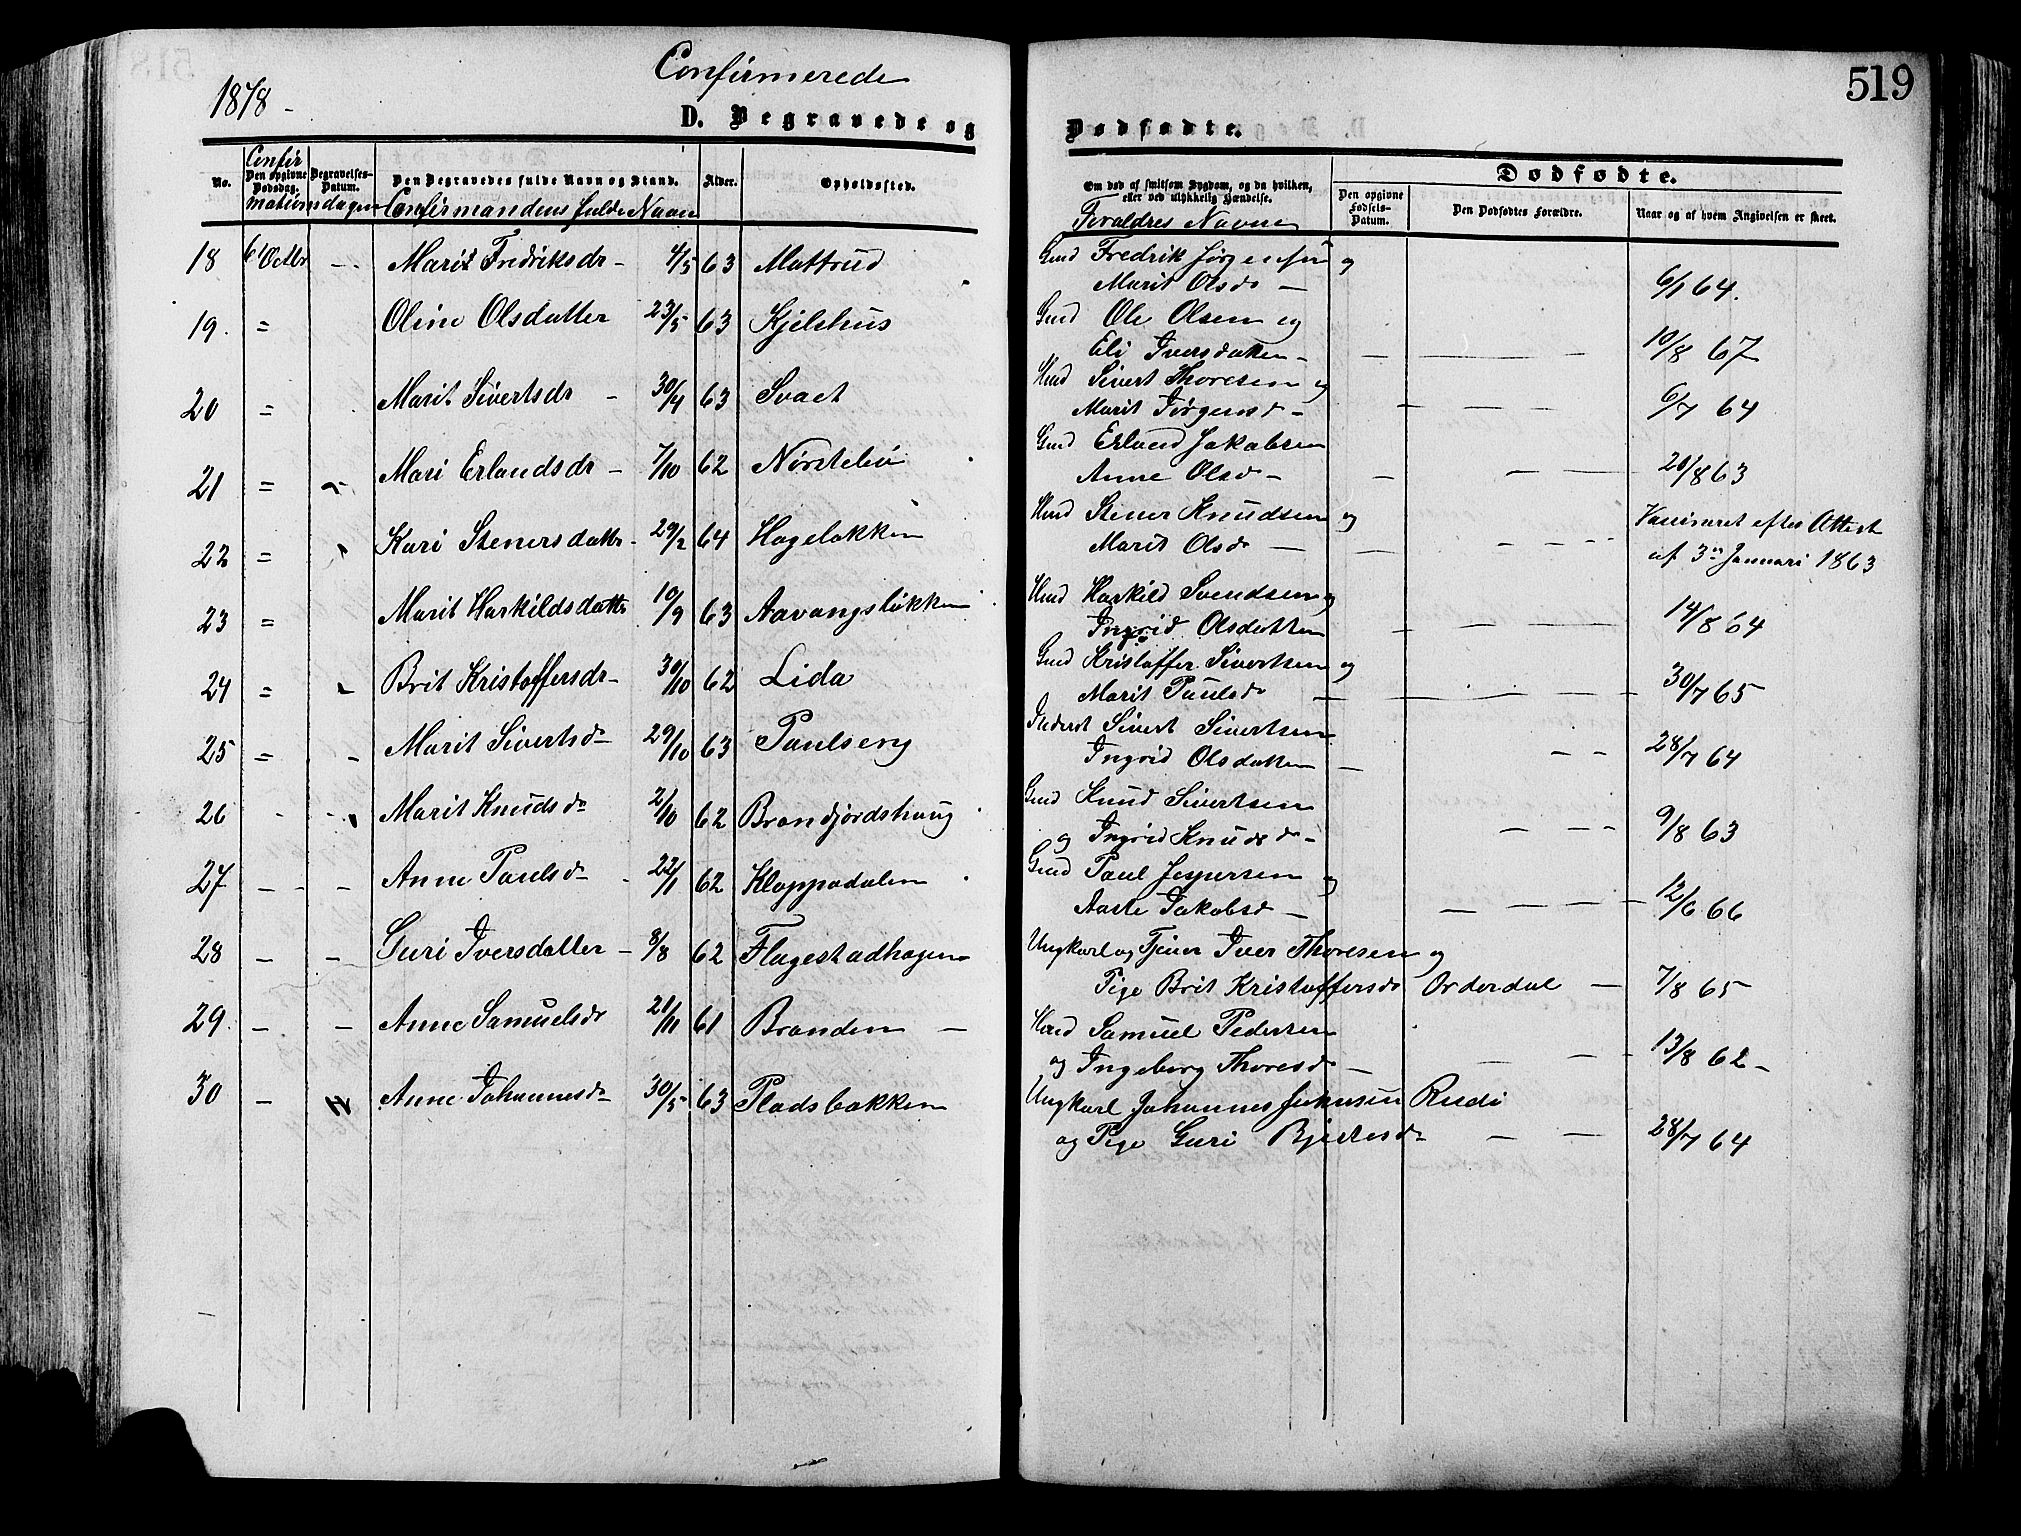 519
1878 -
Confirmerede
D. Begravede og Dødfødte.
No.
Confir
Den opgivne Dødsdag.
Begravelses-Datum.
mationsdagen
Den Begravedes fulde Navn og Stand.
Confirmandens fulde Navn
Alder.
Opholdssted.
Om død af smitsom Sygdom, og da hvilken, eller ved ulykkelig Hændelse.
Forældres Navne
Dødfødte.
Den opgivne Fødsels-Datum.
Den Dødfødtes Forældre.
Naar og af hvem Angivelsen er skeet.
18 6 Octbr - Marit Fredriksdr - 4/5 63 Mattrud Gmd Fredrik Jørgensen og
Marit Olsdr - 6/1 64.
19. = Oline Olsdatter 23/5 63 Kjelshus Gmd Ole Olsen og
Eli Iversdatter - 10/8 67
20 = Marit Sivertsdr - 30/4 63 Svaet Hmd Sivert Thoresen og
Marit Jørgensd - 6/7 64
21 = Mari Erlandsdr - 7/10 62 Nørstebø Gmd Erland Jakobsen
Anne Olsd - 20/8 63
22 = Kari Stenersdattr - 29/2 64 Hageløkken Hmd Stener Knudsen og
Marit Olsdr - Vaccineret efter Attest
af 3die Januari 1863
23 = Marit Harkildsdattr 10/9 63 Aavangsløkken Hmd Harkild Svendsen og
Ingrid Olsdatter 14/8 64
24 = Brit Kristoffersdr - 30/10 62 Lida Gmd Kristoffer Sivertsen og
Marit Paulsdr - 30/7 65
25 = Marit Sivertsdr 29/10 63 Paulseng Inderst Sivert Sivertsen
Ingrid Olsdatter - 28/7 64
26 - Marit Knudsdr 2/10 62 Brandjordshaug Gmd Knud Sivertsen
og Ingrid Knudsdr - 9/8 63
27 - Anne Paulsdr 22/1 62 Kloppadalen Gmd Paul Jespersen og
Aaste Jakobsd - 12/6 66
28 - Guri Iversdatter - 8/8 62 Flagestadhagen Ungkarl og Tjener Iver Thoresen og
Pige Brit Kristoffersdr Orderdal - 7/8 65
29. - Anne Samuelsdr 21/11 61 Branden - Hmd Samuel Pedersen
og Ingeborg Thoresdr - 13/8 62 -
30 - Anne Johannesdr 30/5 63 Pladsbakken Ungkarl Johannes Johnsen Rudi
og Pige Guri 28/7 64